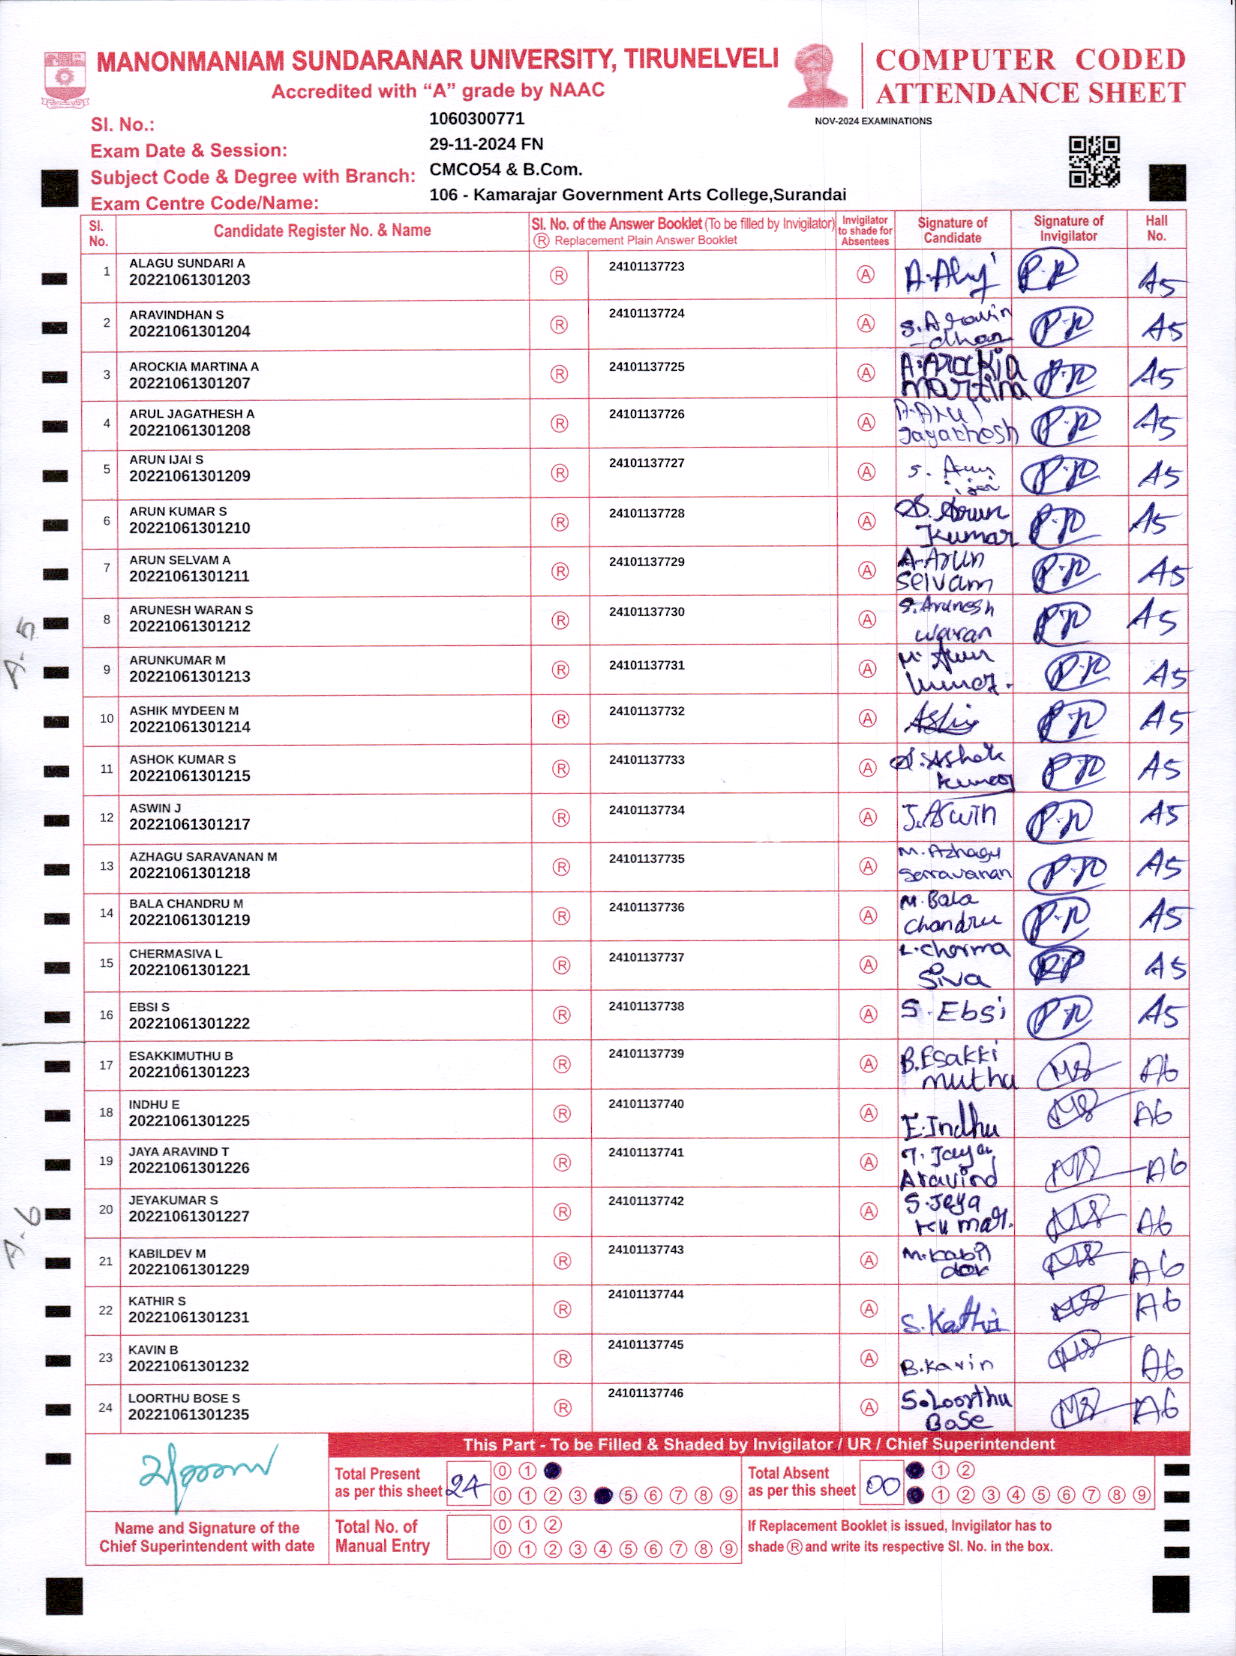 MANONMANIAM SUNDARANAR UNIVERSITY, TIRUNELVELI
Accredited with “A” grade by NAAC
COMPUTER CODED
ATTENDANCE SHEET
NOV-2024 EXAMINATIONS
Sl. No.: 1060300771
Exam Date & Session: 29-11-2024 FN
Subject Code & Degree with Branch: CMCO54 & B.Com.
Exam Centre Code/Name: 106 - Kamarajar Government Arts College,Surandai
Sl. No. Candidate Register No. & Name Sl. No. of the Answer Booklet (To be filled by Invigilator) Ⓡ Replacement Plain Answer Booklet Invigilator to shade for Absentees Signature of Candidate Signature of Invigilator Hall No.
1 ALAGU SUNDARI A 20221061301203 Ⓡ 24101137723 Ⓐ A5
2 ARAVINDHAN S 20221061301204 Ⓡ 24101137724 Ⓐ S.Aravin dhan P.P A5
3 AROCKIA MARTINA A 20221061301207 Ⓡ 24101137725 Ⓐ A.AROCKIA MARTINA P.P A5
4 ARUL JAGATHESH A 20221061301208 Ⓡ 24101137726 Ⓐ A.Arul Jagathesh P.P A5
5 ARUN IJAI S 20221061301209 Ⓡ 24101137727 Ⓐ S. Arun ijai P.P A5
6 ARUN KUMAR S 20221061301210 Ⓡ 24101137728 Ⓐ S. Arun Kumar P.P A5
7 ARUN SELVAM A 20221061301211 Ⓡ 24101137729 Ⓐ A.Arun Selvam P.P A5
8 ARUNESH WARAN S 20221061301212 Ⓡ 24101137730 Ⓐ S.Arunesh waran P.P A5
9 ARUNKUMAR M 20221061301213 Ⓡ 24101137731 Ⓐ M. Arun kumar. P.P A5
10 ASHIK MYDEEN M 20221061301214 Ⓡ 24101137732 Ⓐ P.P A5
11 ASHOK KUMAR S 20221061301215 Ⓡ 24101137733 Ⓐ S.Ashok kumar P.P A5
12 ASWIN J 20221061301217 Ⓡ 24101137734 Ⓐ J.Aswin P.P A5
13 AZHAGU SARAVANAN M 20221061301218 Ⓡ 24101137735 Ⓐ M.Azhagu Saravanan P.P A5
14 BALA CHANDRU M 20221061301219 Ⓡ 24101137736 Ⓐ M.Bala Chandru P.P A5
15 CHERMASIVA L 20221061301221 Ⓡ 24101137737 Ⓐ L.cherma Siva A5
16 EBSI S 20221061301222 Ⓡ 24101137738 Ⓐ S.Ebsi P.P A5
17 ESAKKIMUTHU B 20221061301223 Ⓡ 24101137739 Ⓐ B.Esakki muthu MS A6
18 INDHU E 20221061301225 Ⓡ 24101137740 Ⓐ E.Indhu MS A6
19 JAYA ARAVIND T 20221061301226 Ⓡ 24101137741 Ⓐ T.Jaya Aravind MS A6
20 JEYAKUMAR S 20221061301227 Ⓡ 24101137742 Ⓐ S.Jeya kumar. MS A6
21 KABILDEV M 20221061301229 Ⓡ 24101137743 Ⓐ M.kabil dev MS A6
22 KATHIR S 20221061301231 Ⓡ 24101137744 Ⓐ S.Kathir MS A6
23 KAVIN B 20221061301232 Ⓡ 24101137745 Ⓐ B.Kavin MS A6
24 LOORTHU BOSE S 20221061301235 Ⓡ 24101137746 Ⓐ S.Loorthu Bose MS A6
A.5
A.6
This Part - To be Filled & Shaded by Invigilator / UR / Chief Superintendent
Total Present as per this sheet 24 0 1
0 1 2 3 5 6 7 8 9
Total Absent as per this sheet 00 1 2
1 2 3 4 5 6 7 8 9
Name and Signature of the Chief Superintendent with date
Total No. of Manual Entry 0 1 2
0 1 2 3 4 5 6 7 8 9
If Replacement Booklet is issued, Invigilator has to
shade Ⓡ and write its respective Sl. No. in the box.